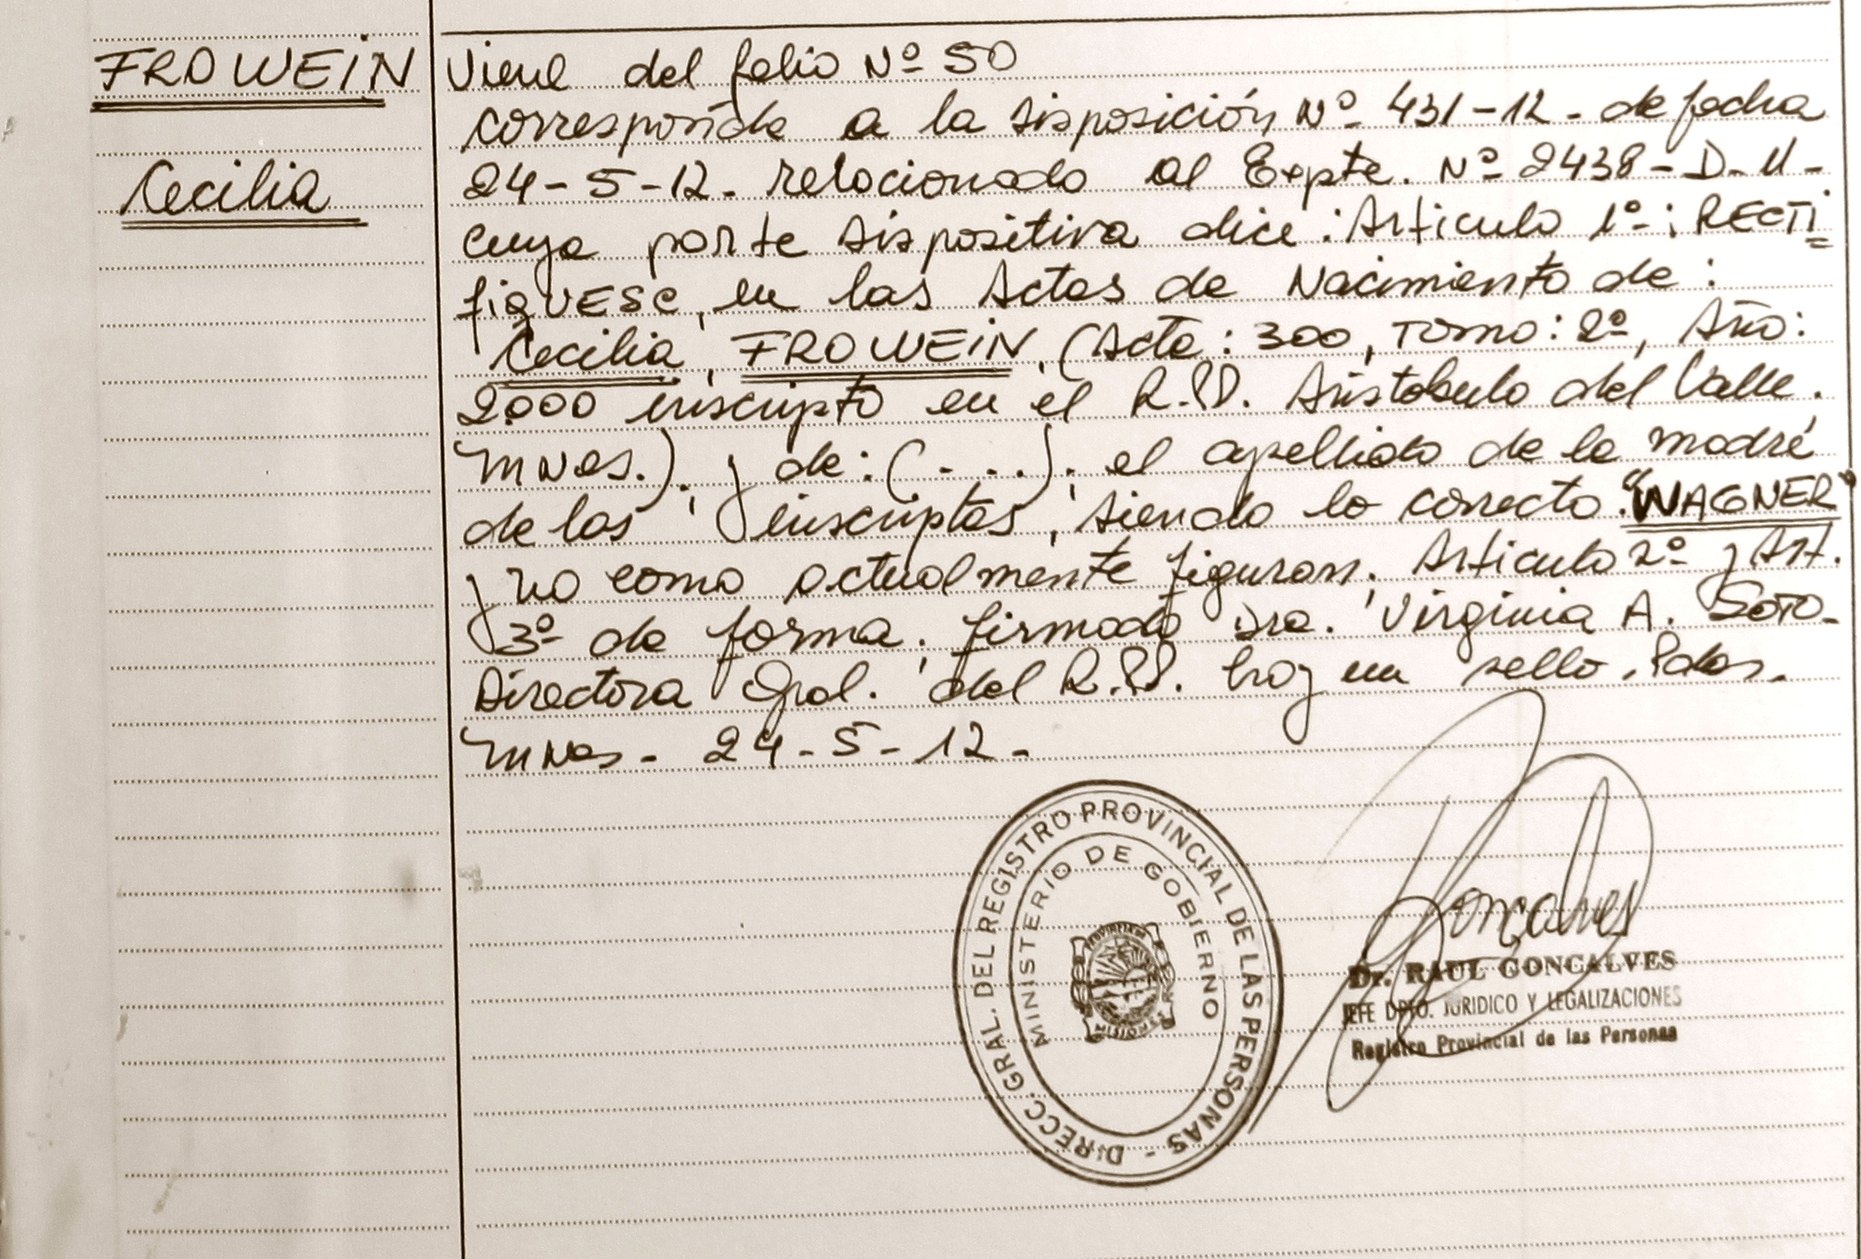 FROWEIN
Cecilia
Viene del folio Nº 50
corresponde a la disposición Nº 431-12. de fecha
24-5-12. relacionado al Expte. Nº 2438-D-U-
cuya parte dispositiva dice: Articulo 1º: RECTI=
fiqUESE, en las Actas de Nacimiento de:
Cecilia, FROWEIN, (Acta: 300, Tomo: 2º, Año:
2000 inscripto en el R.P.P. Aristobulo del Valle.
Mnes.), y de: (....), el apellido de la madre
de los inscriptos, siendo lo correcto "WAGNER"
y no como actualmente figuran. Articulo 2º y Art.
3º de forma. firmado Dra. Virginia A. SOTO-
Directora Gral. del R.P.P. hoy un sello. Pdas.
Mnes- 24-5-12-
DIRECC. GRAL. DEL REGISTRO PROVINCIAL DE LAS PERSONAS -
MINISTERIO DE GOBIERNO
PROVINCIA DE
MISIONES
Goncalves
Dr. RAUL GONCALVES
JEFE DPTO. JURIDICO Y LEGALIZACIONES
Registro Provincial de las Personas